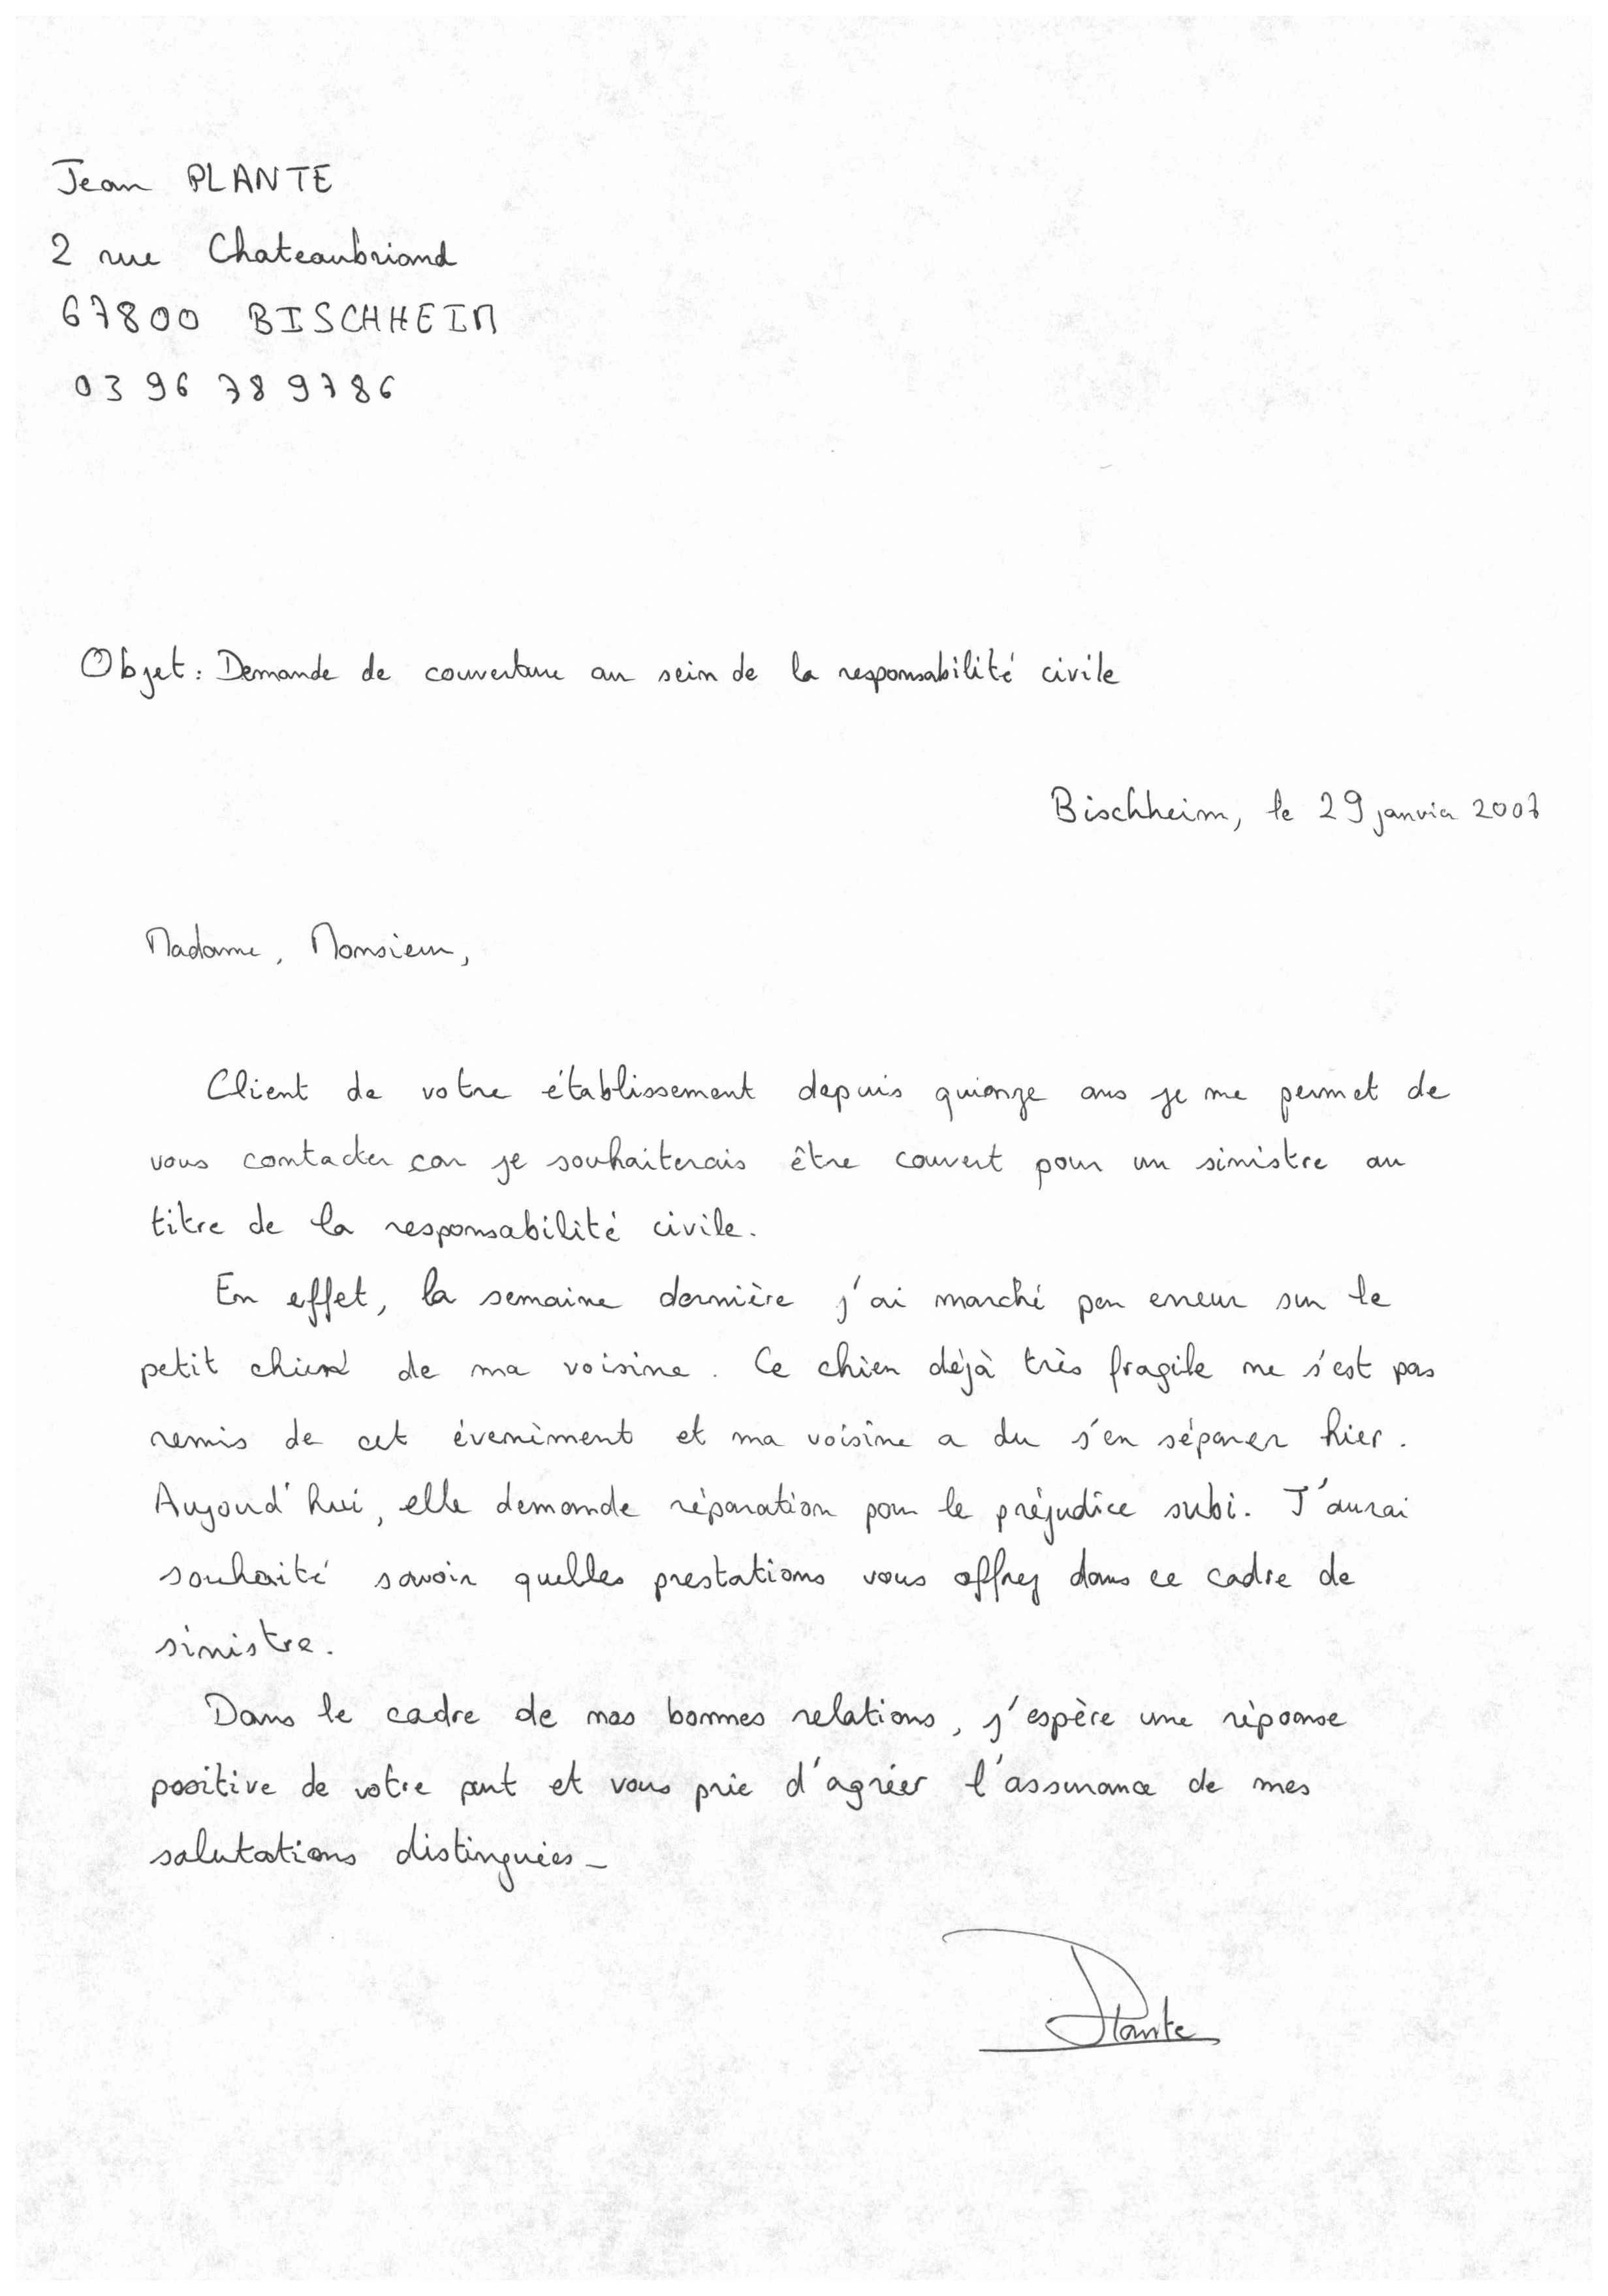 Jean PLANTE
2 rue Chateaubriand
67800 BISCHHEIM
03 96 78 97 86
Objet : Demande de couverture au sein de la responsabilité civile
Bischheim, le 29 janvier 2007
Madame, Monsieur,
Client de votre établissement depuis quionze ans je me permet de
vous contacter car je souhaiterais être couvert pour un sinistre au
titre de la responsabilité civile.
En effet, la semaine dernière j'ai marché par erreur sur le
petit chien de ma voisine. Ce chien déjà très fragile ne s'est pas
remis de cet évenèment et ma voisine a du s'en séparer hier.
Aujourd'hui, elle demande réparation pour le préjudice subi. J'aurai
souhaité savoir quelles prestations vous offrez dans ce cadre de
sinistre.
Dans le cadre de nos bonnes relations, j'espère une réponse
positive de votre part et vous prie d'agréer l'assurance de mes
salutations distinguées_
Plante